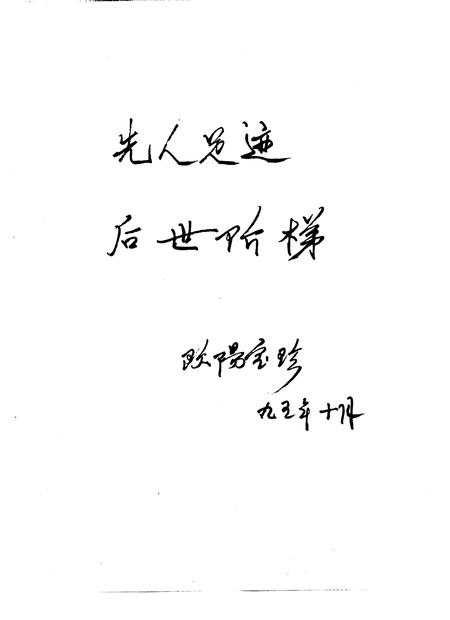 先人足迹
后世阶梯
欧陽宝珍
九五年十月